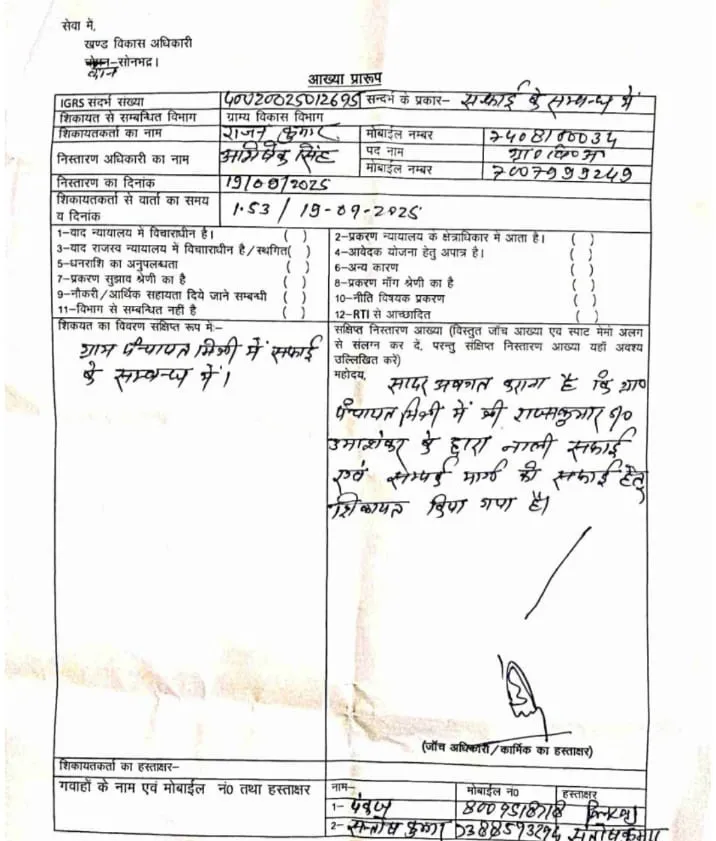 सेवा में,
खण्ड विकास अधिकारी
सोनभद्र।
आख्या प्रारूप
IGRS संदर्भ संख्या 40020025012695 सन्दर्भ के प्रकार– सफाई के सम्बन्ध में
शिकायत से सम्बन्धित विभाग ग्राम्य विकास विभाग
शिकायतकर्ता का नाम राजन कुमार मोबाईल नम्बर 7408100034
निस्तारण अधिकारी का नाम अभिषेक सिंह पद नाम
मोबाईल नम्बर 7007999249
निस्तारण का दिनांक 19/09/2025
शिकायतकर्ता से वार्ता का समय
व दिनांक 1.53 / 19-09-2025
1-वाद न्यायालय में विचाराधीन है। ( ) 2-प्रकरण न्यायालय के क्षेत्राधिकार में आता है। ( )
3-वाद राजस्व न्यायालय में विचाराधीन है/स्थगित( ) 4-आवेदक योजना हेतु अपात्र है। ( )
5-धनराशि का अनुपलब्धता ( ) 6-अन्य कारण ( )
7-प्रकरण सुझाव श्रेणी का है ( ) 8-प्रकरण माँग श्रेणी का है ( )
9-नौकरी/आर्थिक सहायता दिये जाने सम्बन्धी ( ) 10-नीति विषयक प्रकरण ( )
11-विभाग से सम्बन्धित नहीं है ( ) 12-RTI से आच्छादित ( )
शिकयत का विवरण संक्षिप्त रूप मे:-
ग्राम पंचायत में सफाई
के सम्बन्ध में।
संक्षिप्त निस्तारण आख्या (विस्तृत जाँच आख्या एवं स्पाट मेमो अलग
से संलग्न कर दें, परन्तु संक्षिप्त निस्तारण आख्या यहाँ अवश्य
उल्लिखित करें)
महोदय,
सादर अवगत कराना है कि ग्रा0
पंचायत में श्री
उमाशंकर के द्वारा नाली सफाई
एवं सम्पर्क मार्ग की सफाई हेतु
शिकायत किया गया है।
(जाँच अधिकारी/कार्मिक का हस्ताक्षर)
शिकायतकर्ता का हस्ताक्षर–
गवाहों के नाम एवं मोबाईल नं0 तथा हस्ताक्षर नाम– मोबाईल नं0 हस्ताक्षर
1- पंकज
2- सन्तोष कुमार सन्तोष कुमार